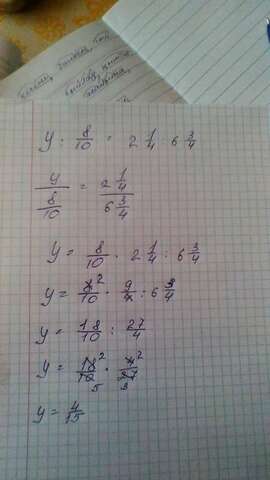 y : 8/10 = 2 1/4 6 3/4
y / 8/10 = 2 1/4 / 6 3/4
y = 8/10 · 2 1/4 : 6 3/4
y = 8 2/10 · 9/4 : 6 3/4
y = 18/10 : 27/4
y = 18 2/10 5 · 4 2/27 3
y = 4/15